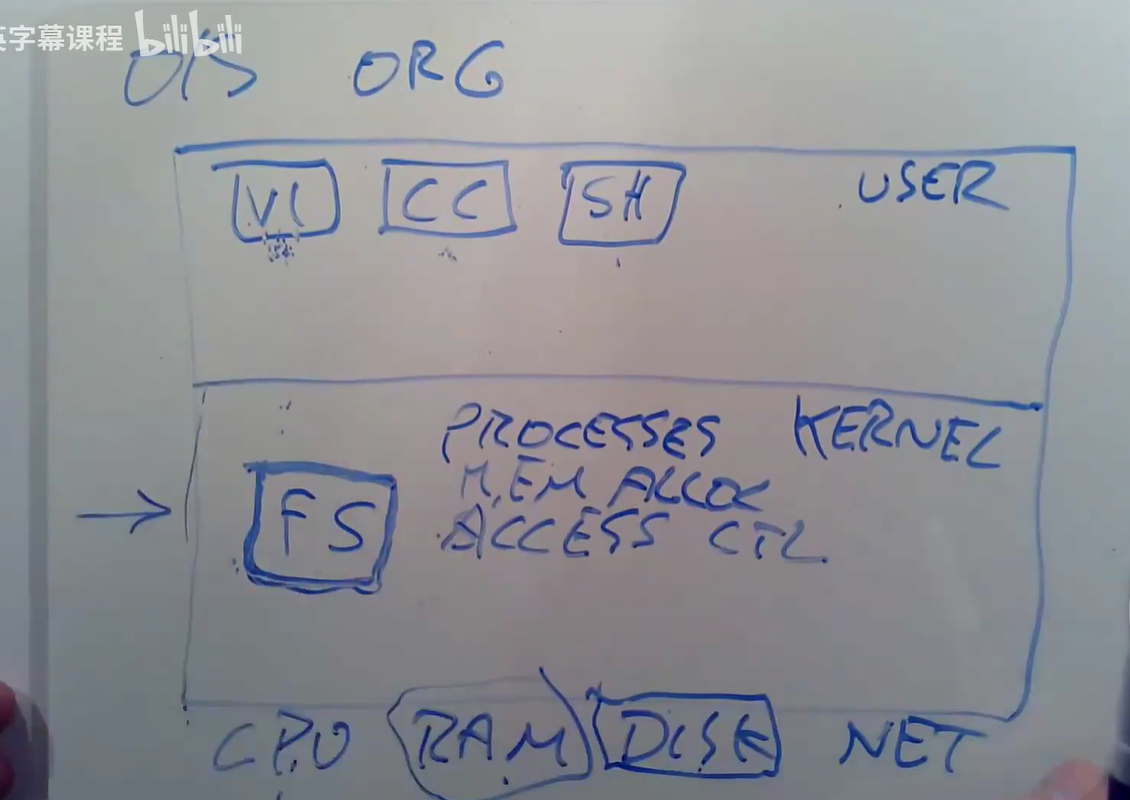 英字幕课程 bilibili
O/S ORG
VI CC SH USER
PROCESSES KERNEL
MEM ALLOC
FS ACCESS CTL
CPU RAM DISK NET